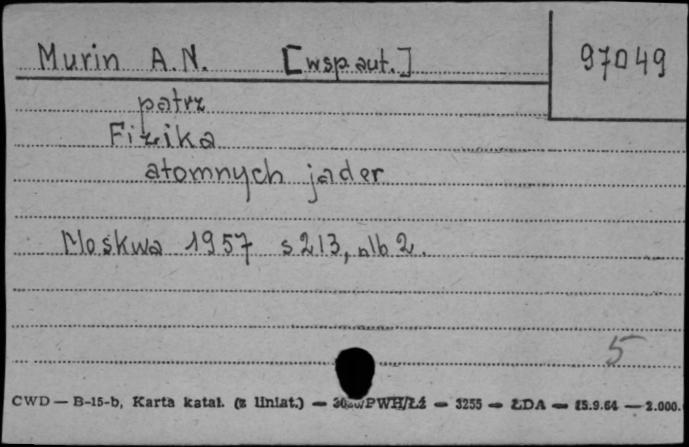 Murin A.N. [wsp aut.]
97049
patrz
Fizika
atomnych jader
Moskwa 1957 s 213, nlb 2.
5
CWD — B-15-b, Karta katal. (z liniat.) — PWH/Łź — 3255 — ŁDA — 15.9.64 — 2.000.